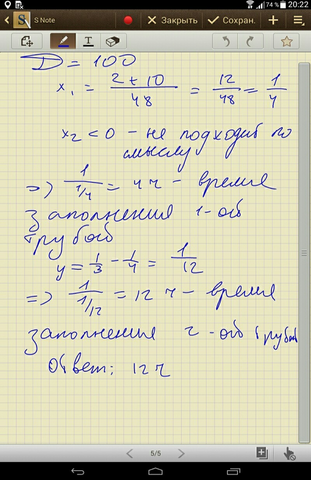 74 % 20:22
S Note Закрыть Сохран.
D = 100
x₁ = (2 + 10)/48 = 12/48 = 1/4
x₂ < 0 - не подходит по
смыслу
=> 1/(1/4) = 4 ч - время
заполнения 1-ой
трубой
y = 1/3 - 1/4 = 1/12
=> 1/(1/12) = 12 ч - время
заполнения 2-ой трубой
Ответ: 12 ч
5/5